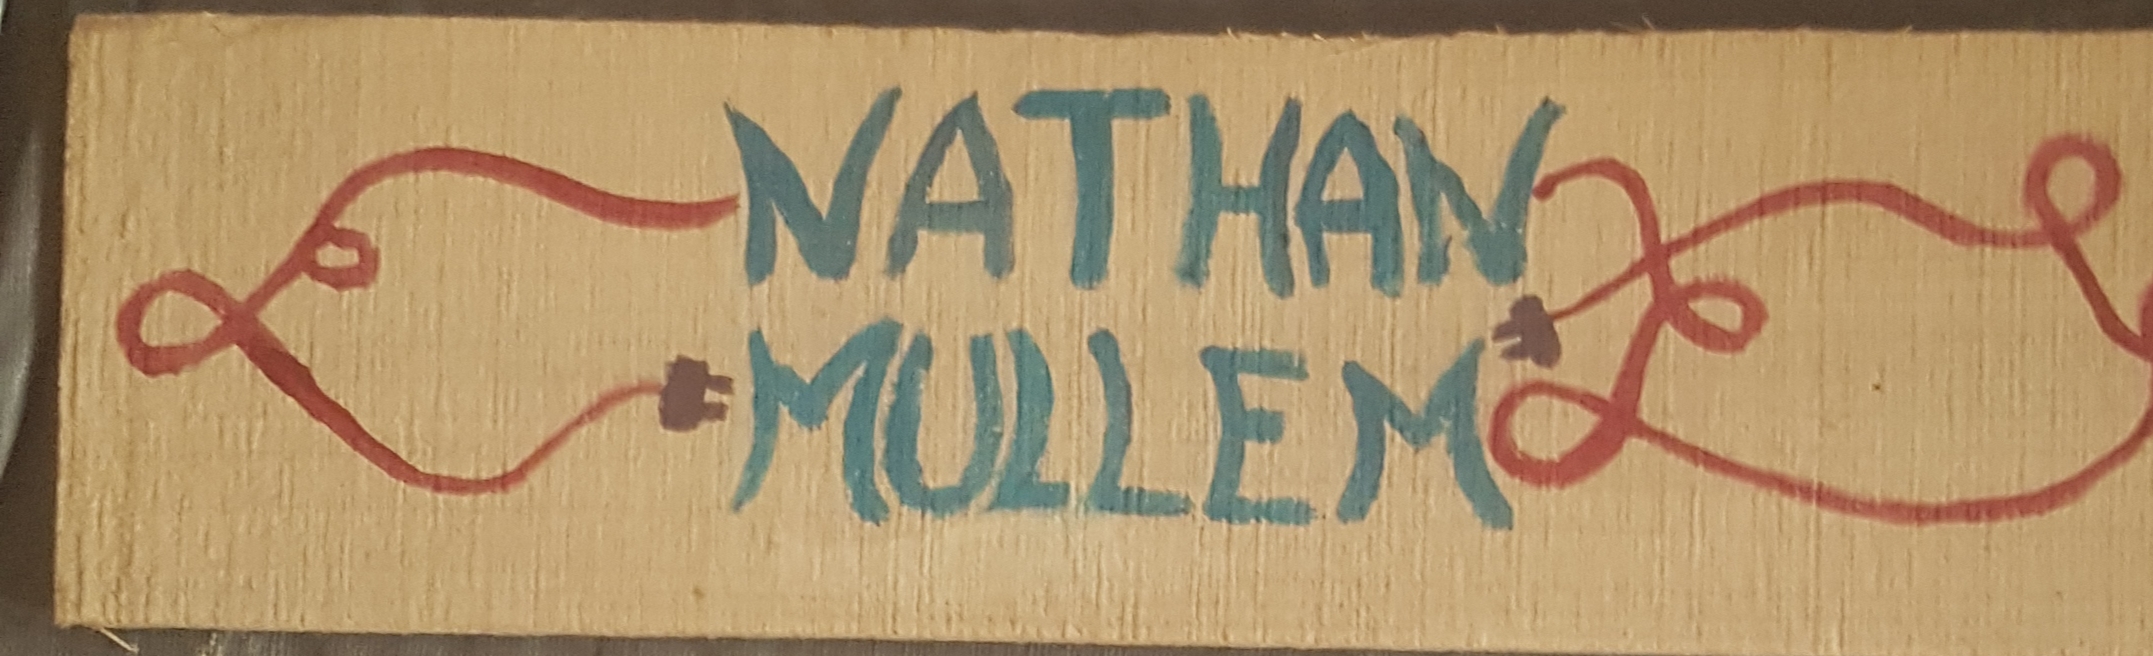 NATHAN
MULLEM